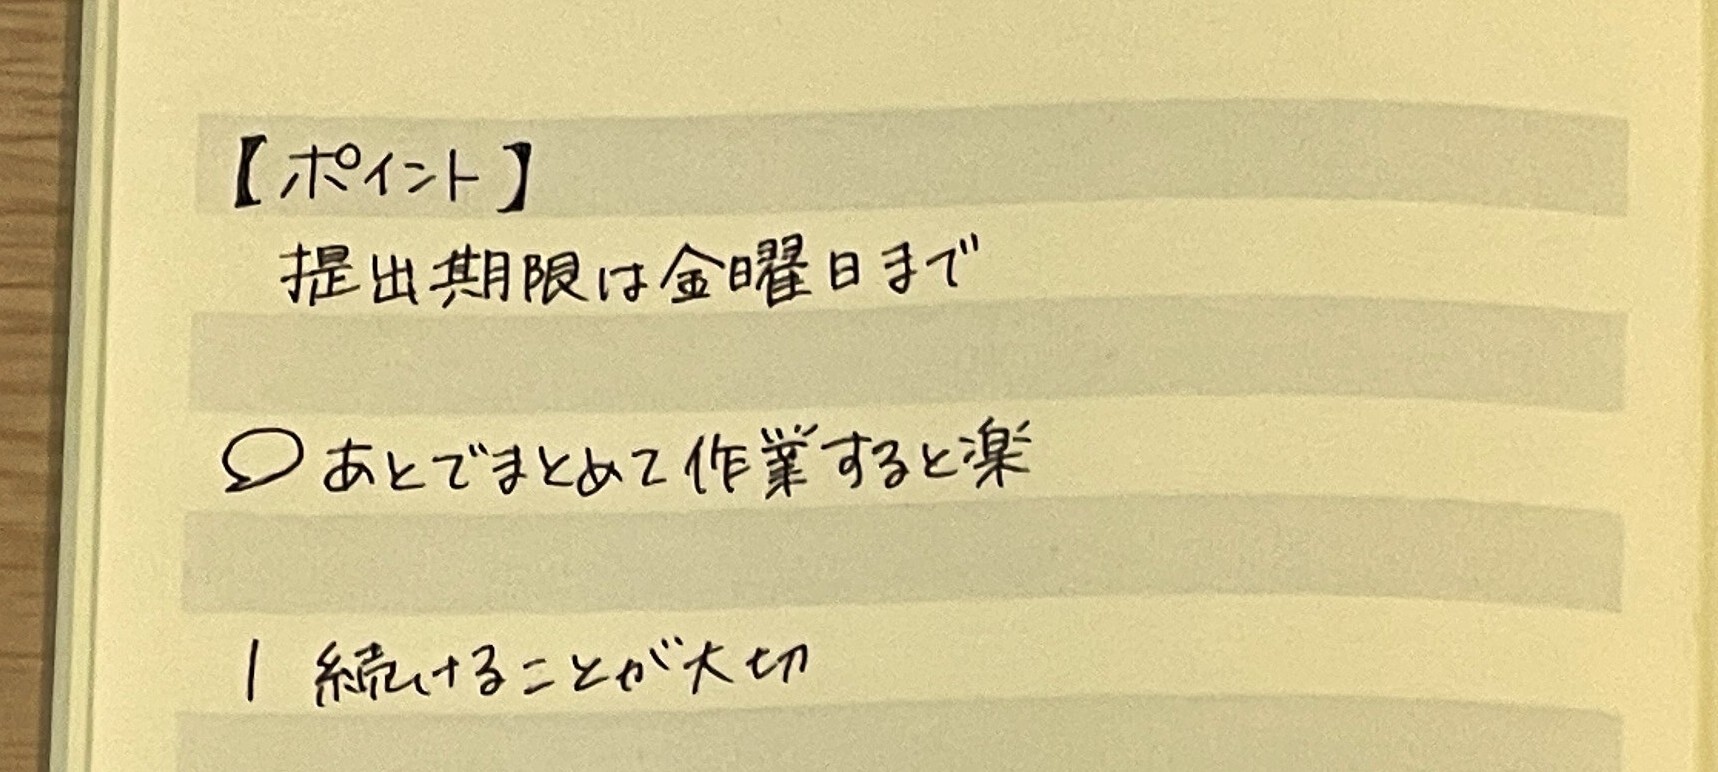 【ポイント】
提出期限は金曜日まで
あとでまとめて作業すると楽
| 続けることが大切